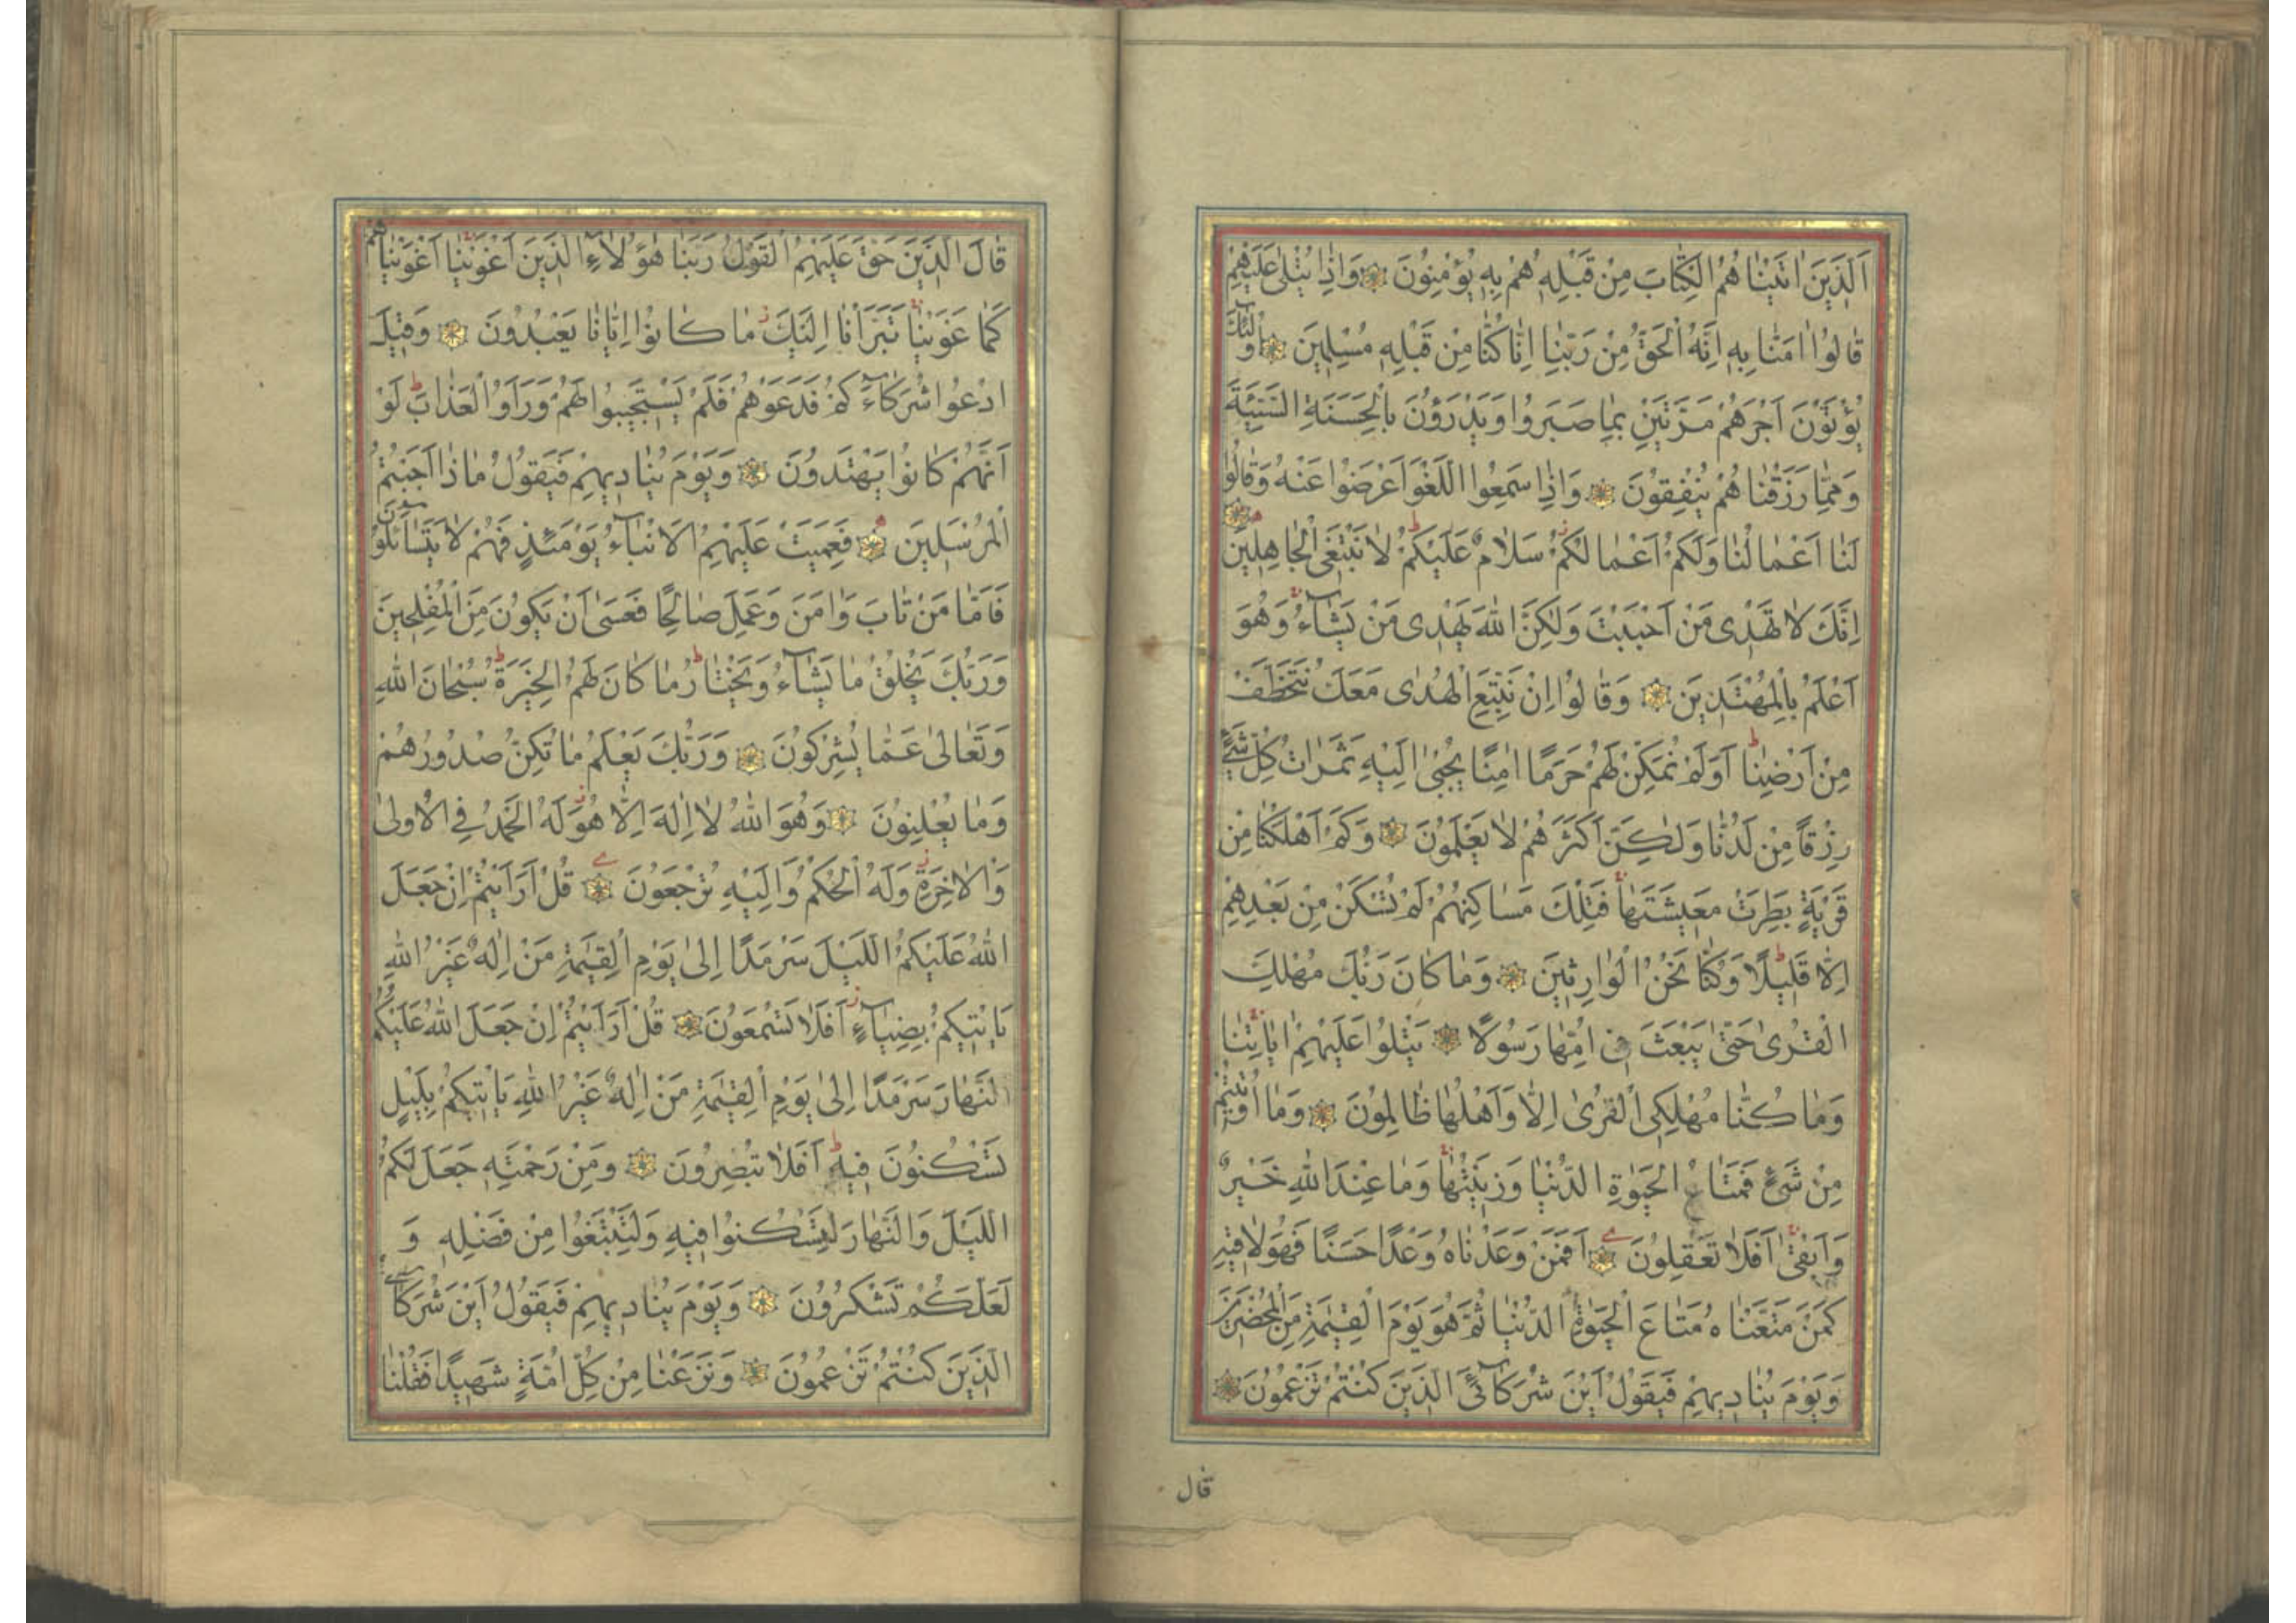 اَلَّذِينَ اٰتَيْنٰاهُمُ الْكِتٰابَ مِنْ قَبْلِهِ هُمْ بِهِ يُؤْمِنُونَ وَاِذٰا يُتْلٰى عَلَيْهِمْ
قٰالُوا اٰمَنّٰا بِهِ اِنَّهُ الْحَقُّ مِنْ رَبِّنٰا اِنّٰا كُنّٰا مِنْ قَبْلِهِ مُسْلِمِينَ اُولٰئِكَ
يُؤْتَوْنَ اَجْرَهُمْ مَرَّتَيْنِ بِمٰا صَبَرُوا وَيَدْرَؤُنَ بِالْحَسَنَةِ السَّيِّئَةَ
وَمِمّٰا رَزَقْنٰاهُمْ يُنْفِقُونَ وَاِذٰا سَمِعُوا اللَّغْوَ اَعْرَضُوا عَنْهُ وَقٰالُوا
لَنٰا اَعْمٰالُنٰا وَلَكُمْ اَعْمٰالُكُمْ سَلٰامٌ عَلَيْكُمْ لٰا نَبْتَغِى الْجٰاهِلِينَ
اِنَّكَ لٰا تَهْدِى مَنْ اَحْبَبْتَ وَلٰكِنَّ اللّٰهَ يَهْدِى مَنْ يَشٰٓاءُ وَهُوَ
اَعْلَمُ بِالْمُهْتَدِينَ وَقٰالُوا اِنْ نَتَّبِعِ الْهُدٰى مَعَكَ نُتَخَطَّفْ
مِنْ اَرْضِنٰا اَوَلَمْ نُمَكِّنْ لَهُمْ حَرَمًا اٰمِنًا يُجْبٰى اِلَيْهِ ثَمَرٰاتُ كُلِّ شَىْءٍ
رِزْقًا مِنْ لَدُنّٰا وَلٰكِنَّ اَكْثَرَهُمْ لٰا يَعْلَمُونَ وَكَمْ اَهْلَكْنٰا مِنْ
قَرْيَةٍ بَطِرَتْ مَعِيشَتَهٰا فَتِلْكَ مَسٰاكِنُهُمْ لَمْ تُسْكَنْ مِنْ بَعْدِهِمْ
اِلّٰا قَلِيلًا وَكُنّٰا نَحْنُ الْوٰارِثِينَ وَمٰا كٰانَ رَبُّكَ مُهْلِكَ
الْقُرٰى حَتّٰى يَبْعَثَ فِى اُمِّهٰا رَسُولًا يَتْلُوا عَلَيْهِمْ اٰيٰاتِنٰا
وَمٰا كُنّٰا مُهْلِكِى الْقُرٰى اِلّٰا وَاَهْلُهٰا ظٰالِمُونَ وَمٰا اُوتِيتُمْ
مِنْ شَىْءٍ فَمَتٰاعُ الْحَيٰوةِ الدُّنْيٰا وَزِينَتُهٰا وَمٰا عِنْدَ اللّٰهِ خَيْرٌ
وَاَبْقٰى اَفَلٰا تَعْقِلُونَ اَفَمَنْ وَعَدْنٰاهُ وَعْدًا حَسَنًا فَهُوَ لٰاقِيهِ
كَمَنْ مَتَّعْنٰاهُ مَتٰاعَ الْحَيٰوةِ الدُّنْيٰا ثُمَّ هُوَ يَوْمَ الْقِيٰمَةِ مِنَ الْمُحْضَرِينَ
وَيَوْمَ يُنٰادِيهِمْ فَيَقُولُ اَيْنَ شُرَكٰٓائِىَ الَّذِينَ كُنْتُمْ تَزْعُمُونَ
قال
قٰالَ الَّذِينَ حَقَّ عَلَيْهِمُ الْقَوْلُ رَبَّنٰا هٰؤُلٰاءِ الَّذِينَ اَغْوَيْنٰا اَغْوَيْنٰاهُمْ
كَمٰا غَوَيْنٰا تَبَرَّأْنٰا اِلَيْكَ مٰا كٰانُوا اِيّٰانٰا يَعْبُدُونَ وَقِيلَ
ادْعُوا شُرَكٰٓاءَكُمْ فَدَعَوْهُمْ فَلَمْ يَسْتَجِيبُوا لَهُمْ وَرَاَوُا الْعَذٰابَ لَوْ
اَنَّهُمْ كٰانُوا يَهْتَدُونَ وَيَوْمَ يُنٰادِيهِمْ فَيَقُولُ مٰاذٰا اَجَبْتُمُ
الْمُرْسَلِينَ فَعَمِيَتْ عَلَيْهِمُ الْاَنْبٰٓاءُ يَوْمَئِذٍ فَهُمْ لٰا يَتَسٰائَلُونَ
فَاَمّٰا مَنْ تٰابَ وَاٰمَنَ وَعَمِلَ صٰالِحًا فَعَسٰى اَنْ يَكُونَ مِنَ الْمُفْلِحِينَ
وَرَبُّكَ يَخْلُقُ مٰا يَشٰٓاءُ وَيَخْتٰارُ مٰا كٰانَ لَهُمُ الْخِيَرَةُ سُبْحٰانَ اللّٰهِ
وَتَعٰالٰى عَمّٰا يُشْرِكُونَ وَرَبُّكَ يَعْلَمُ مٰا تُكِنُّ صُدُورُهُمْ
وَمٰا يُعْلِنُونَ وَهُوَ اللّٰهُ لٰا اِلٰهَ اِلّٰا هُوَ لَهُ الْحَمْدُ فِى الْاُولٰى
وَالْاٰخِرَةِ وَلَهُ الْحُكْمُ وَاِلَيْهِ تُرْجَعُونَ قُلْ اَرَاَيْتُمْ اِنْ جَعَلَ
اللّٰهُ عَلَيْكُمُ اللَّيْلَ سَرْمَدًا اِلٰى يَوْمِ الْقِيٰمَةِ مَنْ اِلٰهٌ غَيْرُ اللّٰهِ
يَاْتِيكُمْ بِضِيٰٓاءٍ اَفَلٰا تَسْمَعُونَ قُلْ اَرَاَيْتُمْ اِنْ جَعَلَ اللّٰهُ عَلَيْكُمُ
النَّهٰارَ سَرْمَدًا اِلٰى يَوْمِ الْقِيٰمَةِ مَنْ اِلٰهٌ غَيْرُ اللّٰهِ يَاْتِيكُمْ بِلَيْلٍ
تَسْكُنُونَ فِيهِ اَفَلٰا تُبْصِرُونَ وَمِنْ رَحْمَتِهِ جَعَلَ لَكُمُ
اللَّيْلَ وَالنَّهٰارَ لِتَسْكُنُوا فِيهِ وَلِتَبْتَغُوا مِنْ فَضْلِهِ وَ
لَعَلَّكُمْ تَشْكُرُونَ وَيَوْمَ يُنٰادِيهِمْ فَيَقُولُ اَيْنَ شُرَكٰٓائِىَ
الَّذِينَ كُنْتُمْ تَزْعُمُونَ وَنَزَعْنٰا مِنْ كُلِّ اُمَّةٍ شَهِيدًا فَقُلْنٰا